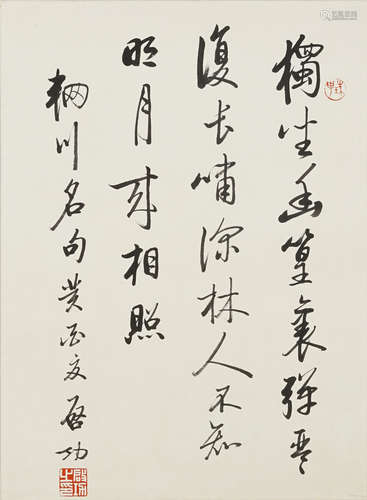 獨坐幽篁裏彈琴
復長嘯深林人不知
明月來相照
輞川名句 癸酉夏 啟功